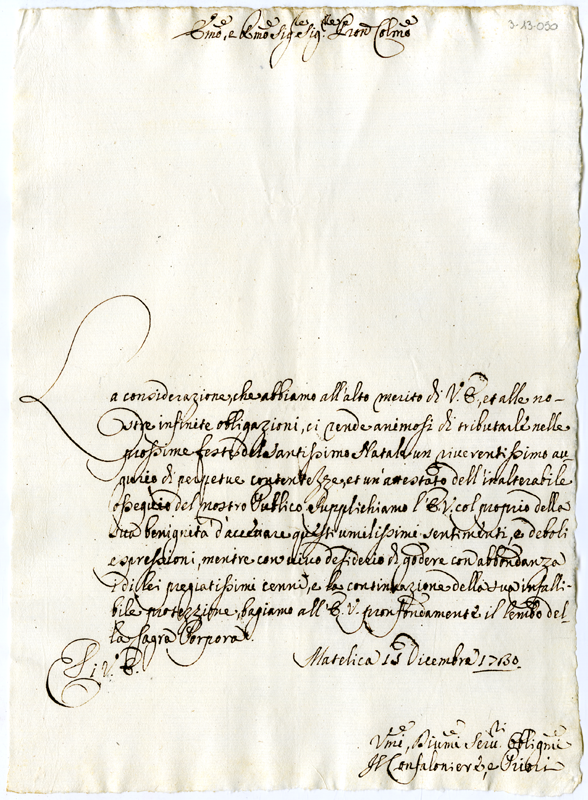 3-13-030
Em̃o, e Rm̃o Sig.re Sig.re Pron Colm̃o
La considerazione, che abbiamo all'alto merito di V. E., et alle no-
stre infinite obligazioni, ci rende animosi di tributarle nelle
prossime feste del Santissimo Natale un riverentissimo au
gurio di perpetue contentezze, et un'attestato dell'inalterabile
ossequio del nostro Publico. Supplichiamo l'E. V. col proprio della
sua benignità d'accettare questi umilissimi sentimenti, e deboli
espressioni, mentre con vivo desiderio di godere con abbondanza
i di lei pregiatissimi cenni, e la continuazione della sua infalli-
bile protezzione, bagiamo all'E. V. profondamente il lembo del
la Sagra Porpora.
Di V. E.
Matelica 15 Dicembre 1730.
Vmi, Diumi Seru.ti Obligmi
Il Confaloniere, e Priori